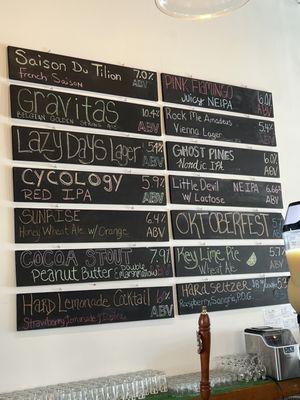 Saison Du Tilion 7.0%
French Saison ABV
Gravitas 10.4%
BELGIAN GOLDEN STRONG ALE ABV
Lazy Days Lager 5.4%
ABV
CYCOLOGY 5.9%
RED IPA ABV
SUNRISE 6.4%
Honey Wheat Ale w/ Orange ABV
COCOA STOUT 7.9%
Peanut Butter & Double Marshmallow ABV
Hard Lemonade Cocktail
Strawberry Lemonade ABV
PINK FLAMINGO 6.0%
Juicy NEIPA ABV
Rock Me Amadeus 5.4%
Vienna Lager ABV
GHOST PINES 6.0%
Nordic IPA ABV
Little Devil NEIPA 6.66%
w/ Lactose ABV
OKTOBERFEST
ABV
Key Lime Pie 5.7%
Wheat Ale ABV
HARD SELTZER
Raspberry Sangria, P.O.G. ABV